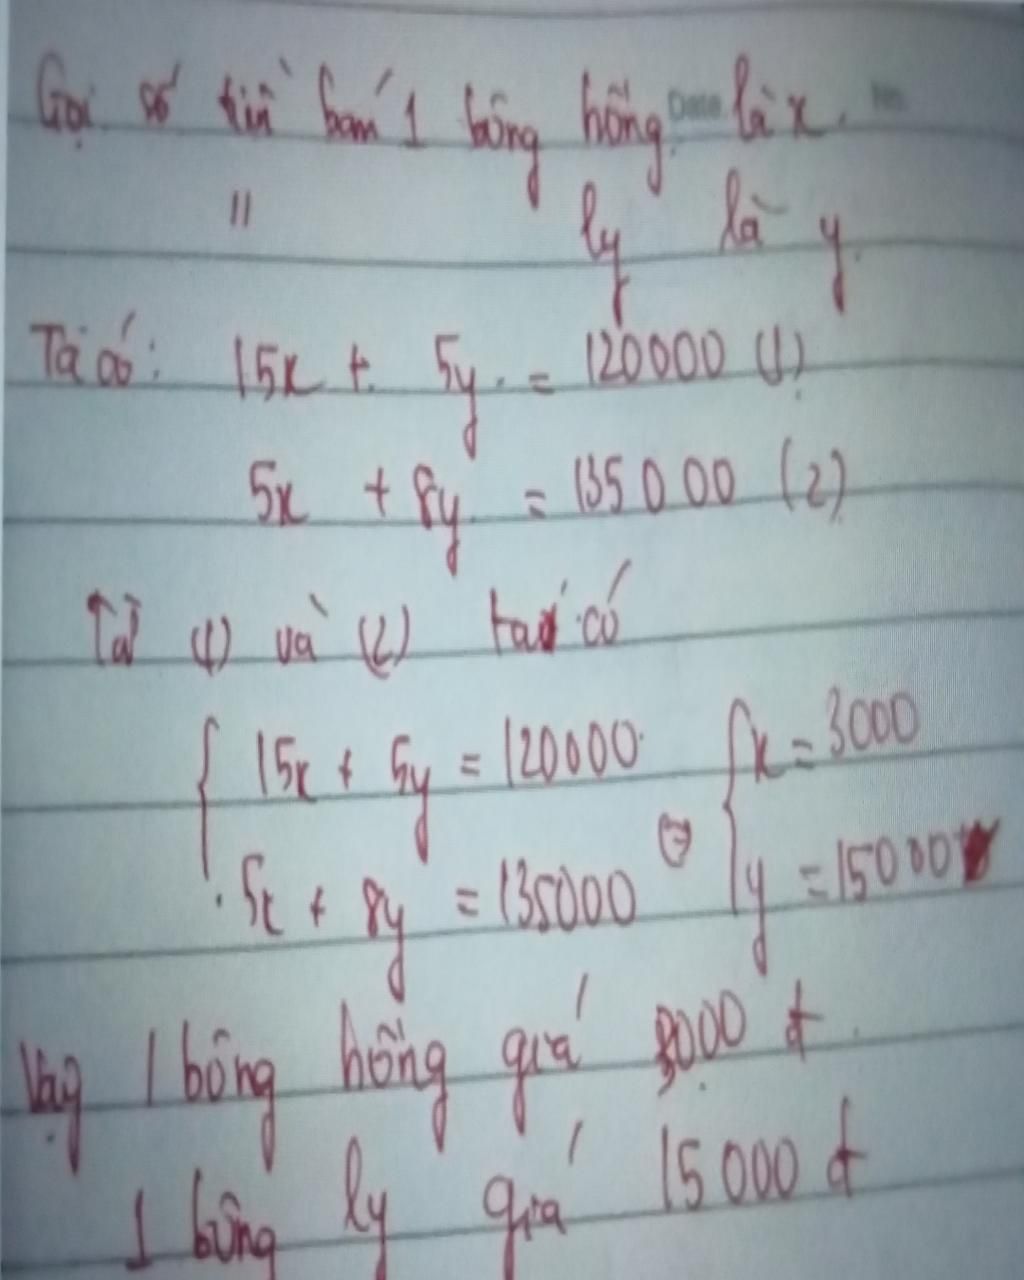 Gọi số tiền bán 1 bông hồng Date là x. No.
" ly là y.
Ta có: 15x + 5y = 120000 (1)
5x + 8y = 135000 (2)
Từ (1) và (2) ta có
{ 15x + 5y = 120000 ⇔ { x = 3000
5x + 8y = 135000 y = 15000
Vậy 1 bông hồng giá 3000 đ.
1 bông ly giá 15000 đ